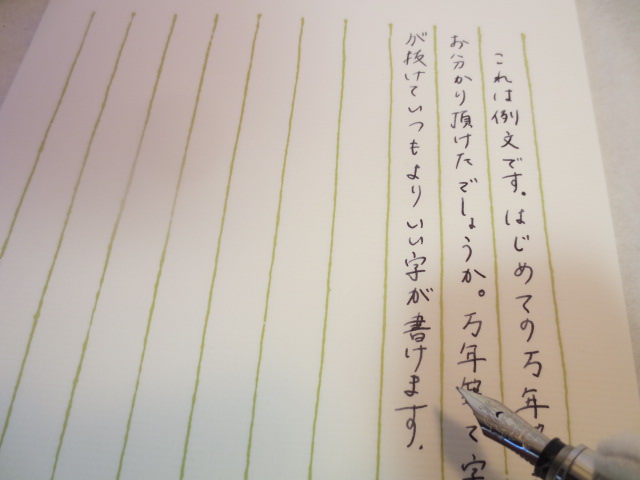 これは例文です。はじめての万年
お分かり頂けたでしょうか。万年筆で字
が抜けていつもよりいい字が書けます。